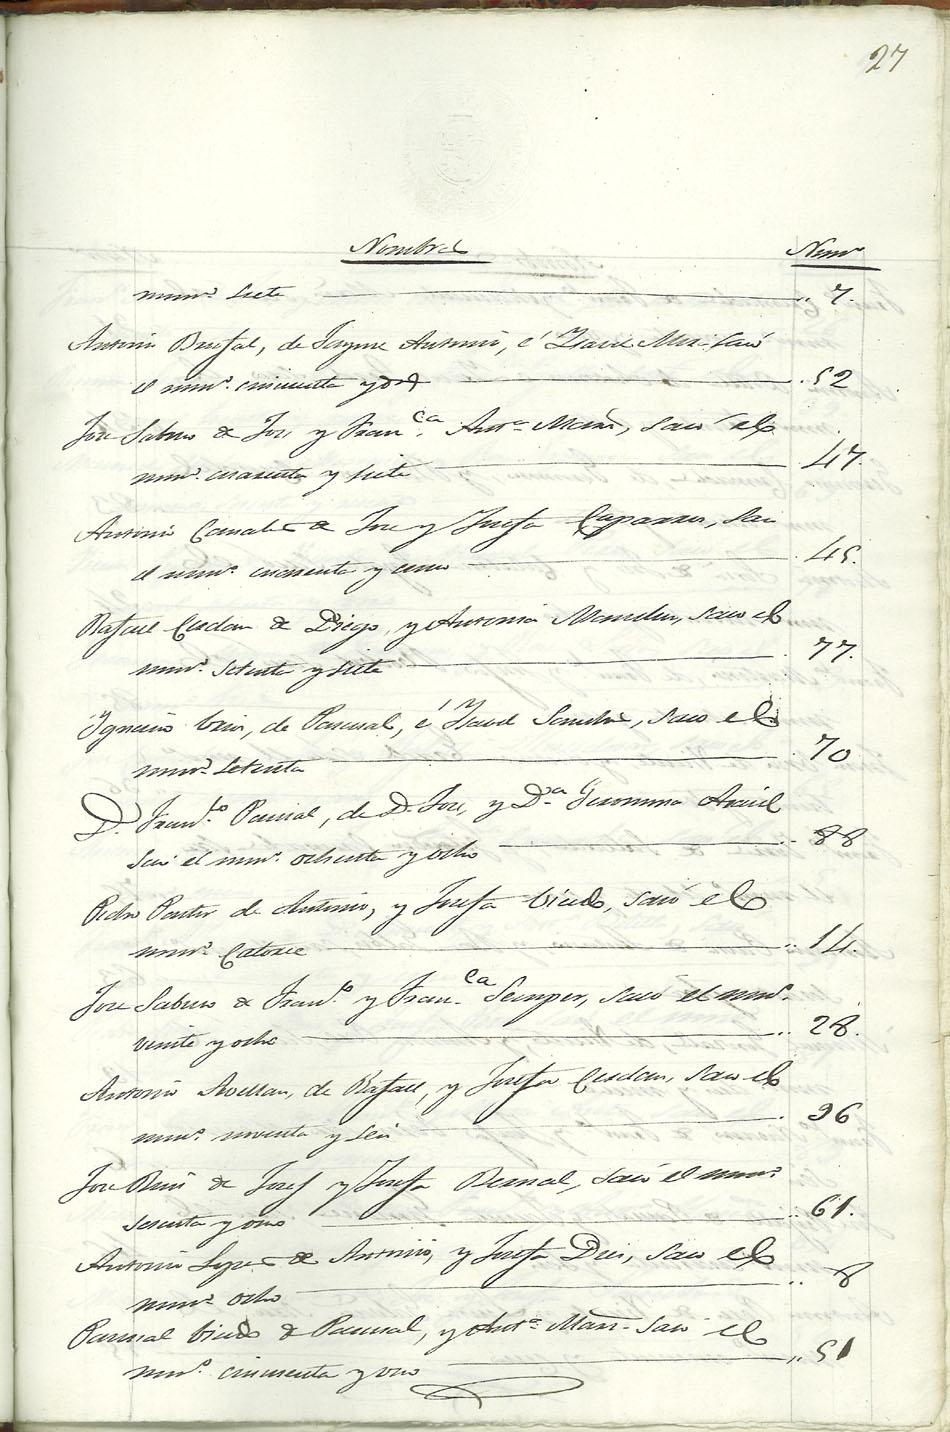 27
Nombres Numº
numº siete 7.
Antonio Brufal, de Jayme Antonio, é Ysavel Mira sacó
el numº cincuenta y dos 52
Jose Sabuco de Jose, y Franca. Anta Mañ, sacó el
numº cuarenta y siete 47.
Antonio Canales de Jose y Josefa Caparros, saco
el numº cuarenta y cinco 45.
Rafael Cerdan de Diego, y Antonia saco el
numº setenta y siete 77.
Ygnacio de Pascual, é Ysavel Sanchez, saco el
numº setenta 70
D. Franco. Pascual, de D. Jose, y Da. Geronima
sacó el numº ochenta y ocho 88
Pedro Pastor de Antonio, y Josefa Vicedo, sacó el
numº catorce 14.
Jose Sabuco de Franco. y Franca. Semper, sacó el numº.
veinte y ocho 28.
Antonio Avellan, de Rafael, y Josefa Cerdan, saco el
numº noventa y seis 96
Jose de Josef y Josefa Bernal, sacó el numº
sesenta y uno 61.
Antonio Lopez de Antonio, y Josefa saco el
numº ocho 8
Pascual Vicedo de Pascual, y Anta Mañ. sacó el
numº. cincuenta y uno 51